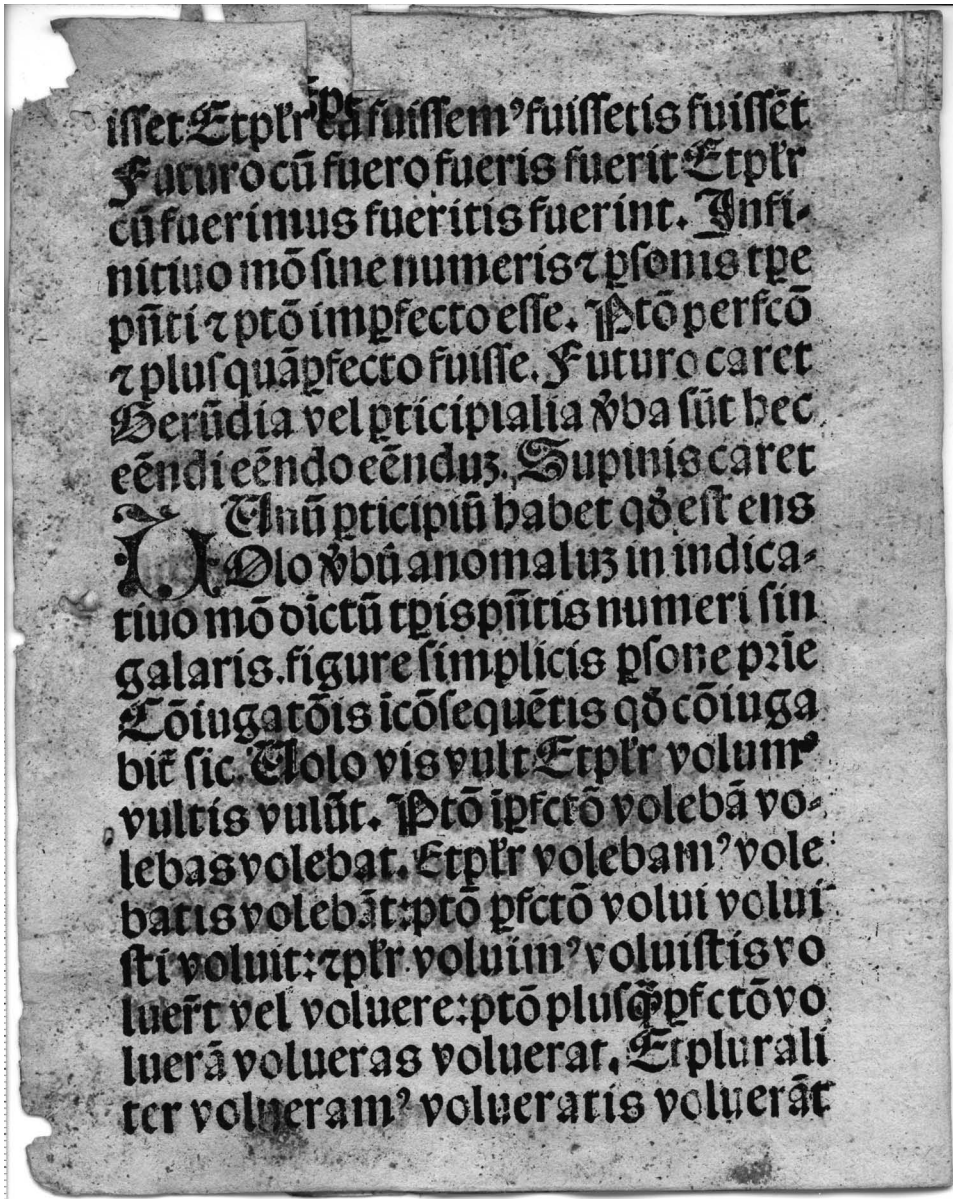 isset Etplr cū fuissemꝰ fuissetis fuissēt
Futuro cū fuero fueris fuerit Etplr
cū fuerimus fueritis fuerint. Infi-
nitiuo mō sine numeris ⁊ ꝑsonis tꝑe
pñti ⁊ ptō imꝑfecto esse. Ptō perfcō
⁊ plusquāꝑfecto fuisse. Futuro caret
Gerūdia vel ꝑticipialia v̄ba sūt hec
eēndi eēndo eēnduꝫ. Supinis caret
Unū ꝑticipiū habet qđ est ens
UOlo v̄bū anomaluꝫ in indica-
tiuo mō dictū tꝑis pñtis numeri sin
galaris. figure simplicis ꝑsone pꝛīe
Cōiugatōis icōsequētis qđ cōiuga
bit̄ sic. Uolo vis vult Etplr volumꝰ
vultis vulūt. Ptō iꝑfctō volebā vo-
lebas volebat. Etplr volebamꝰ vole
batis volebāt: ptō ꝑfctō volui volui
sti voluit: ⁊plr voluimꝰ voluistis vo
luer̄t vel voluere: ptō plusq̄ꝑfctō vo
luerā volueras voluerat. Etplurali
ter volueramꝰ volueratis voluerāt